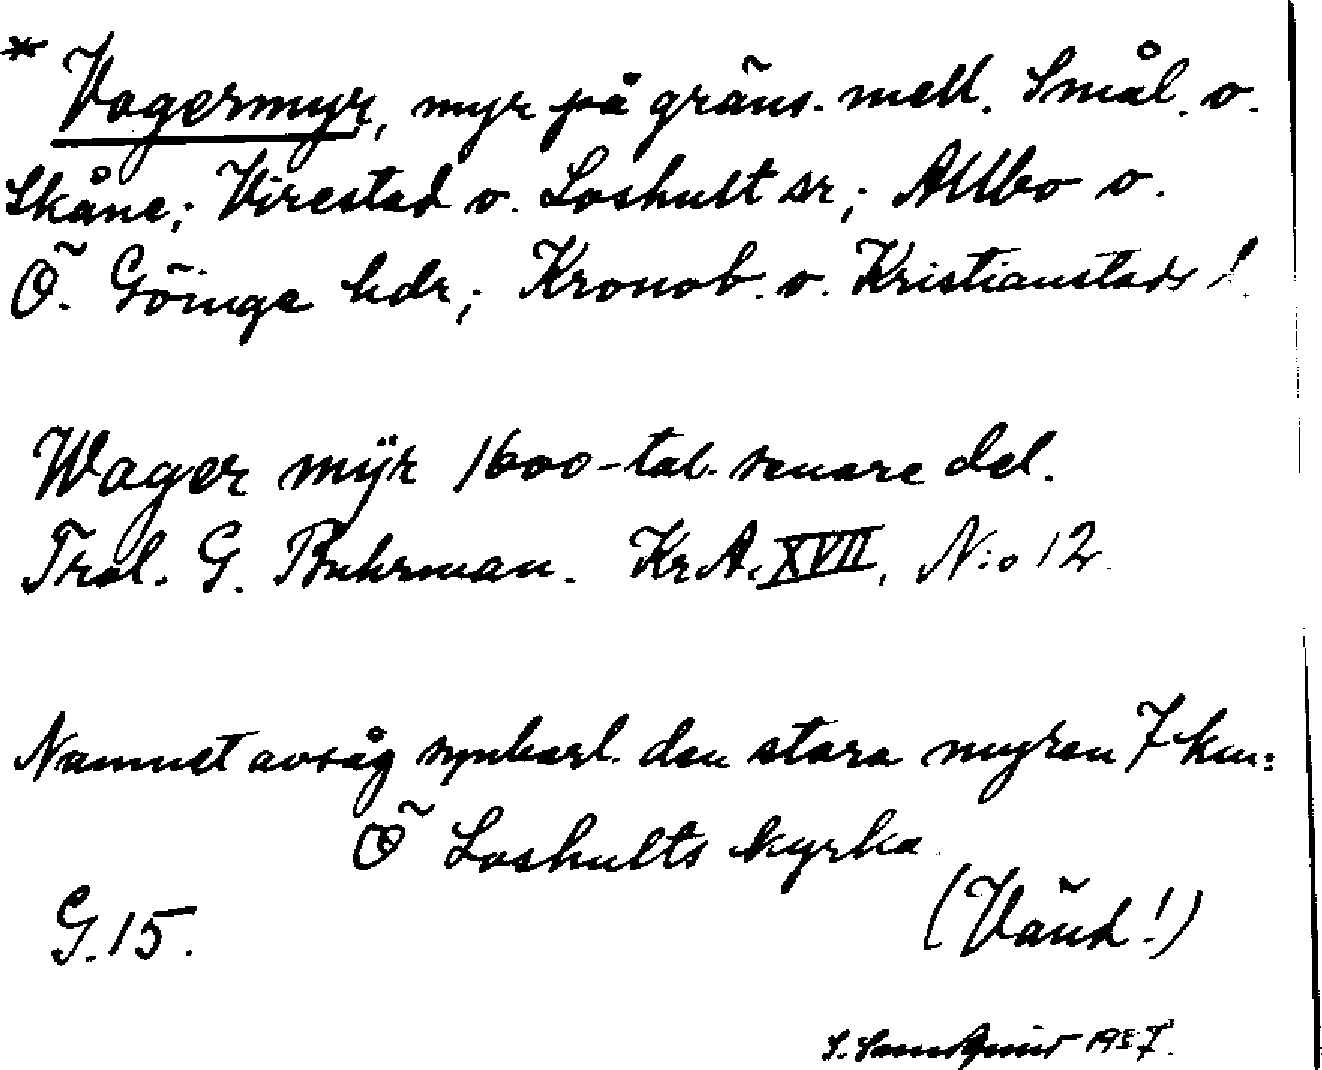 * Vagermyr, myr på gräns. mell. Smål. o.
Skåne; Virestad o. Loshult sr; Allbo o.
Ö. Göinge hdr; Kronob. o. Kristianstads l.
Wager mÿr 1600-tal. senare del.
Trol. G. Buhrman. KrA. XVII, N:o 12.
Namnet avsåg synbarl. den stora myren 7 km:
Ö Loshults kyrka
G. 15.
(Vänd!)
1937.